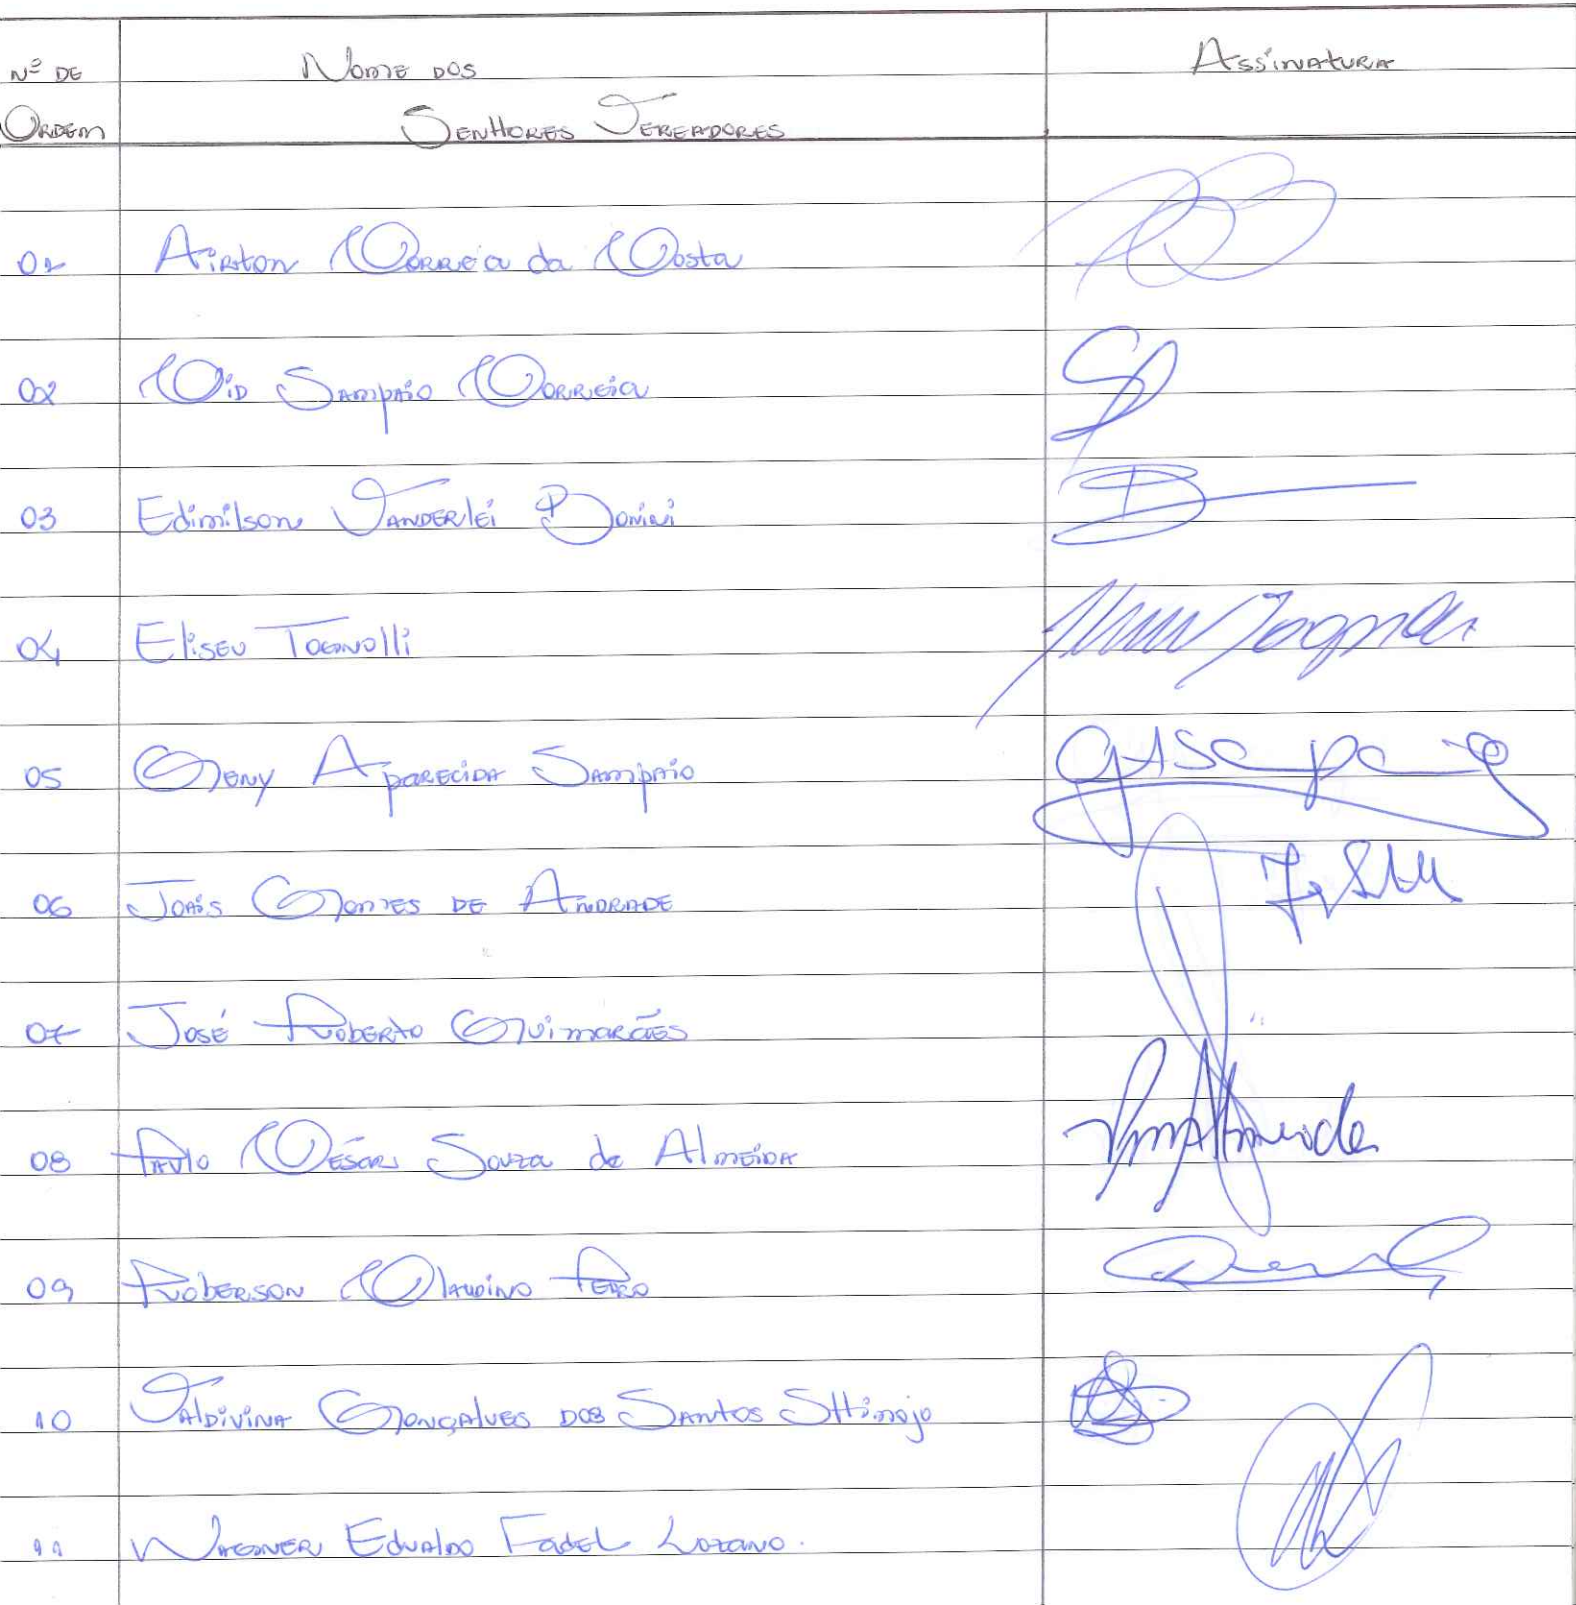 Nº DE Nome dos Assinatura
Ordem Senhores Vereadores
01 Airton Correia da Costa
02 Cid Sampaio Correia
03 Edimilson Vanderlei Bonini
04 Eliseu Tognolli
05 Geny Aparecida Sampaio
06 Joás Gomes de Andrade
07 José Roberto Guimarães
08 Paulo César Souza de Almeida
09 Roberson Claudino Pedro
10 Valdivina Gonçalves dos Santos Shimojo
11 Wagner Edvaldo Fadel Lozano.